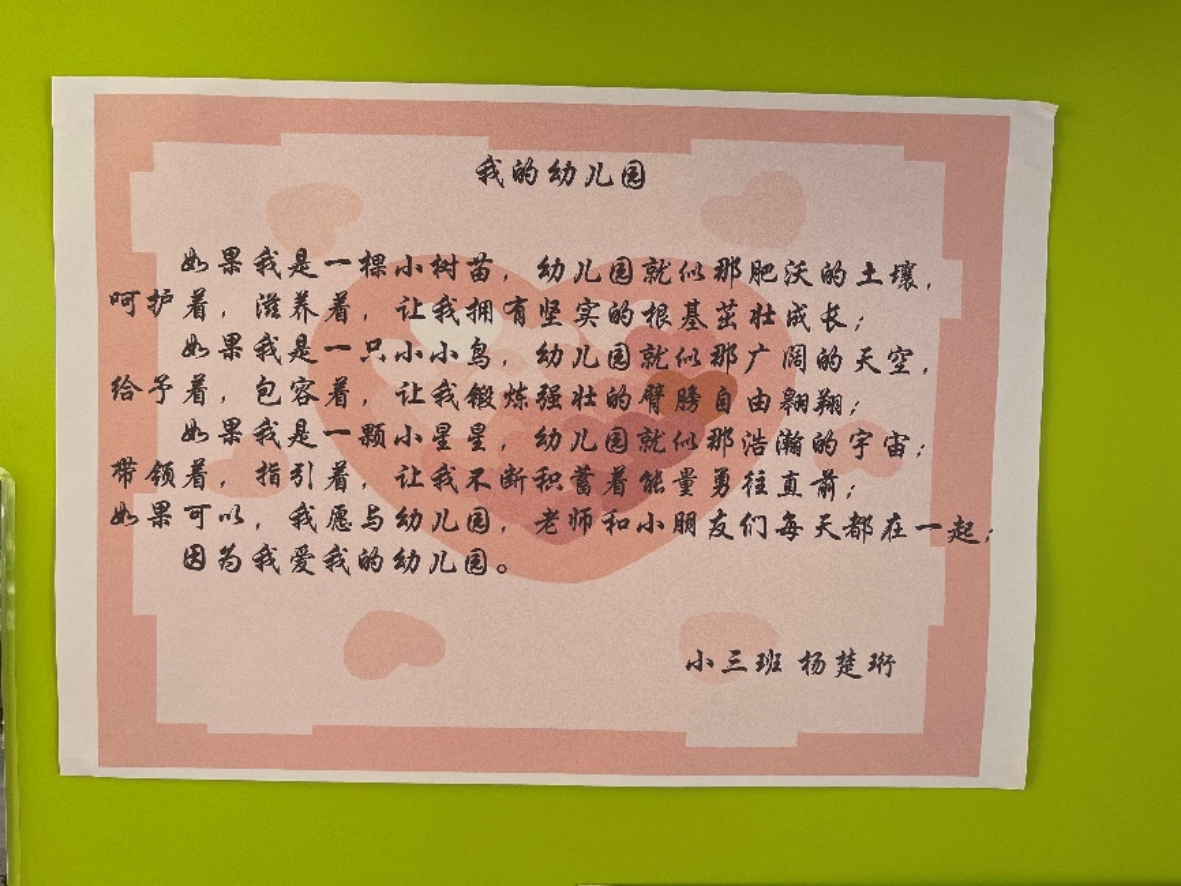 我的幼儿园
如果我是一棵小树苗，幼儿园就似那肥沃的土壤，
呵护着，滋养着，让我拥有坚实的根基茁壮成长；
如果我是一只小小鸟，幼儿园就似那广阔的天空，
给予着，包容着，让我锻炼强壮的臂膀自由翱翔；
如果我是一颗小星星，幼儿园就似那浩瀚的宇宙；
带领着，指引着，让我不断积蓄着能量勇往直前；
如果可以，我愿与幼儿园，老师和小朋友们每天都在一起；
因为我爱我的幼儿园。
小三班 杨楚珩